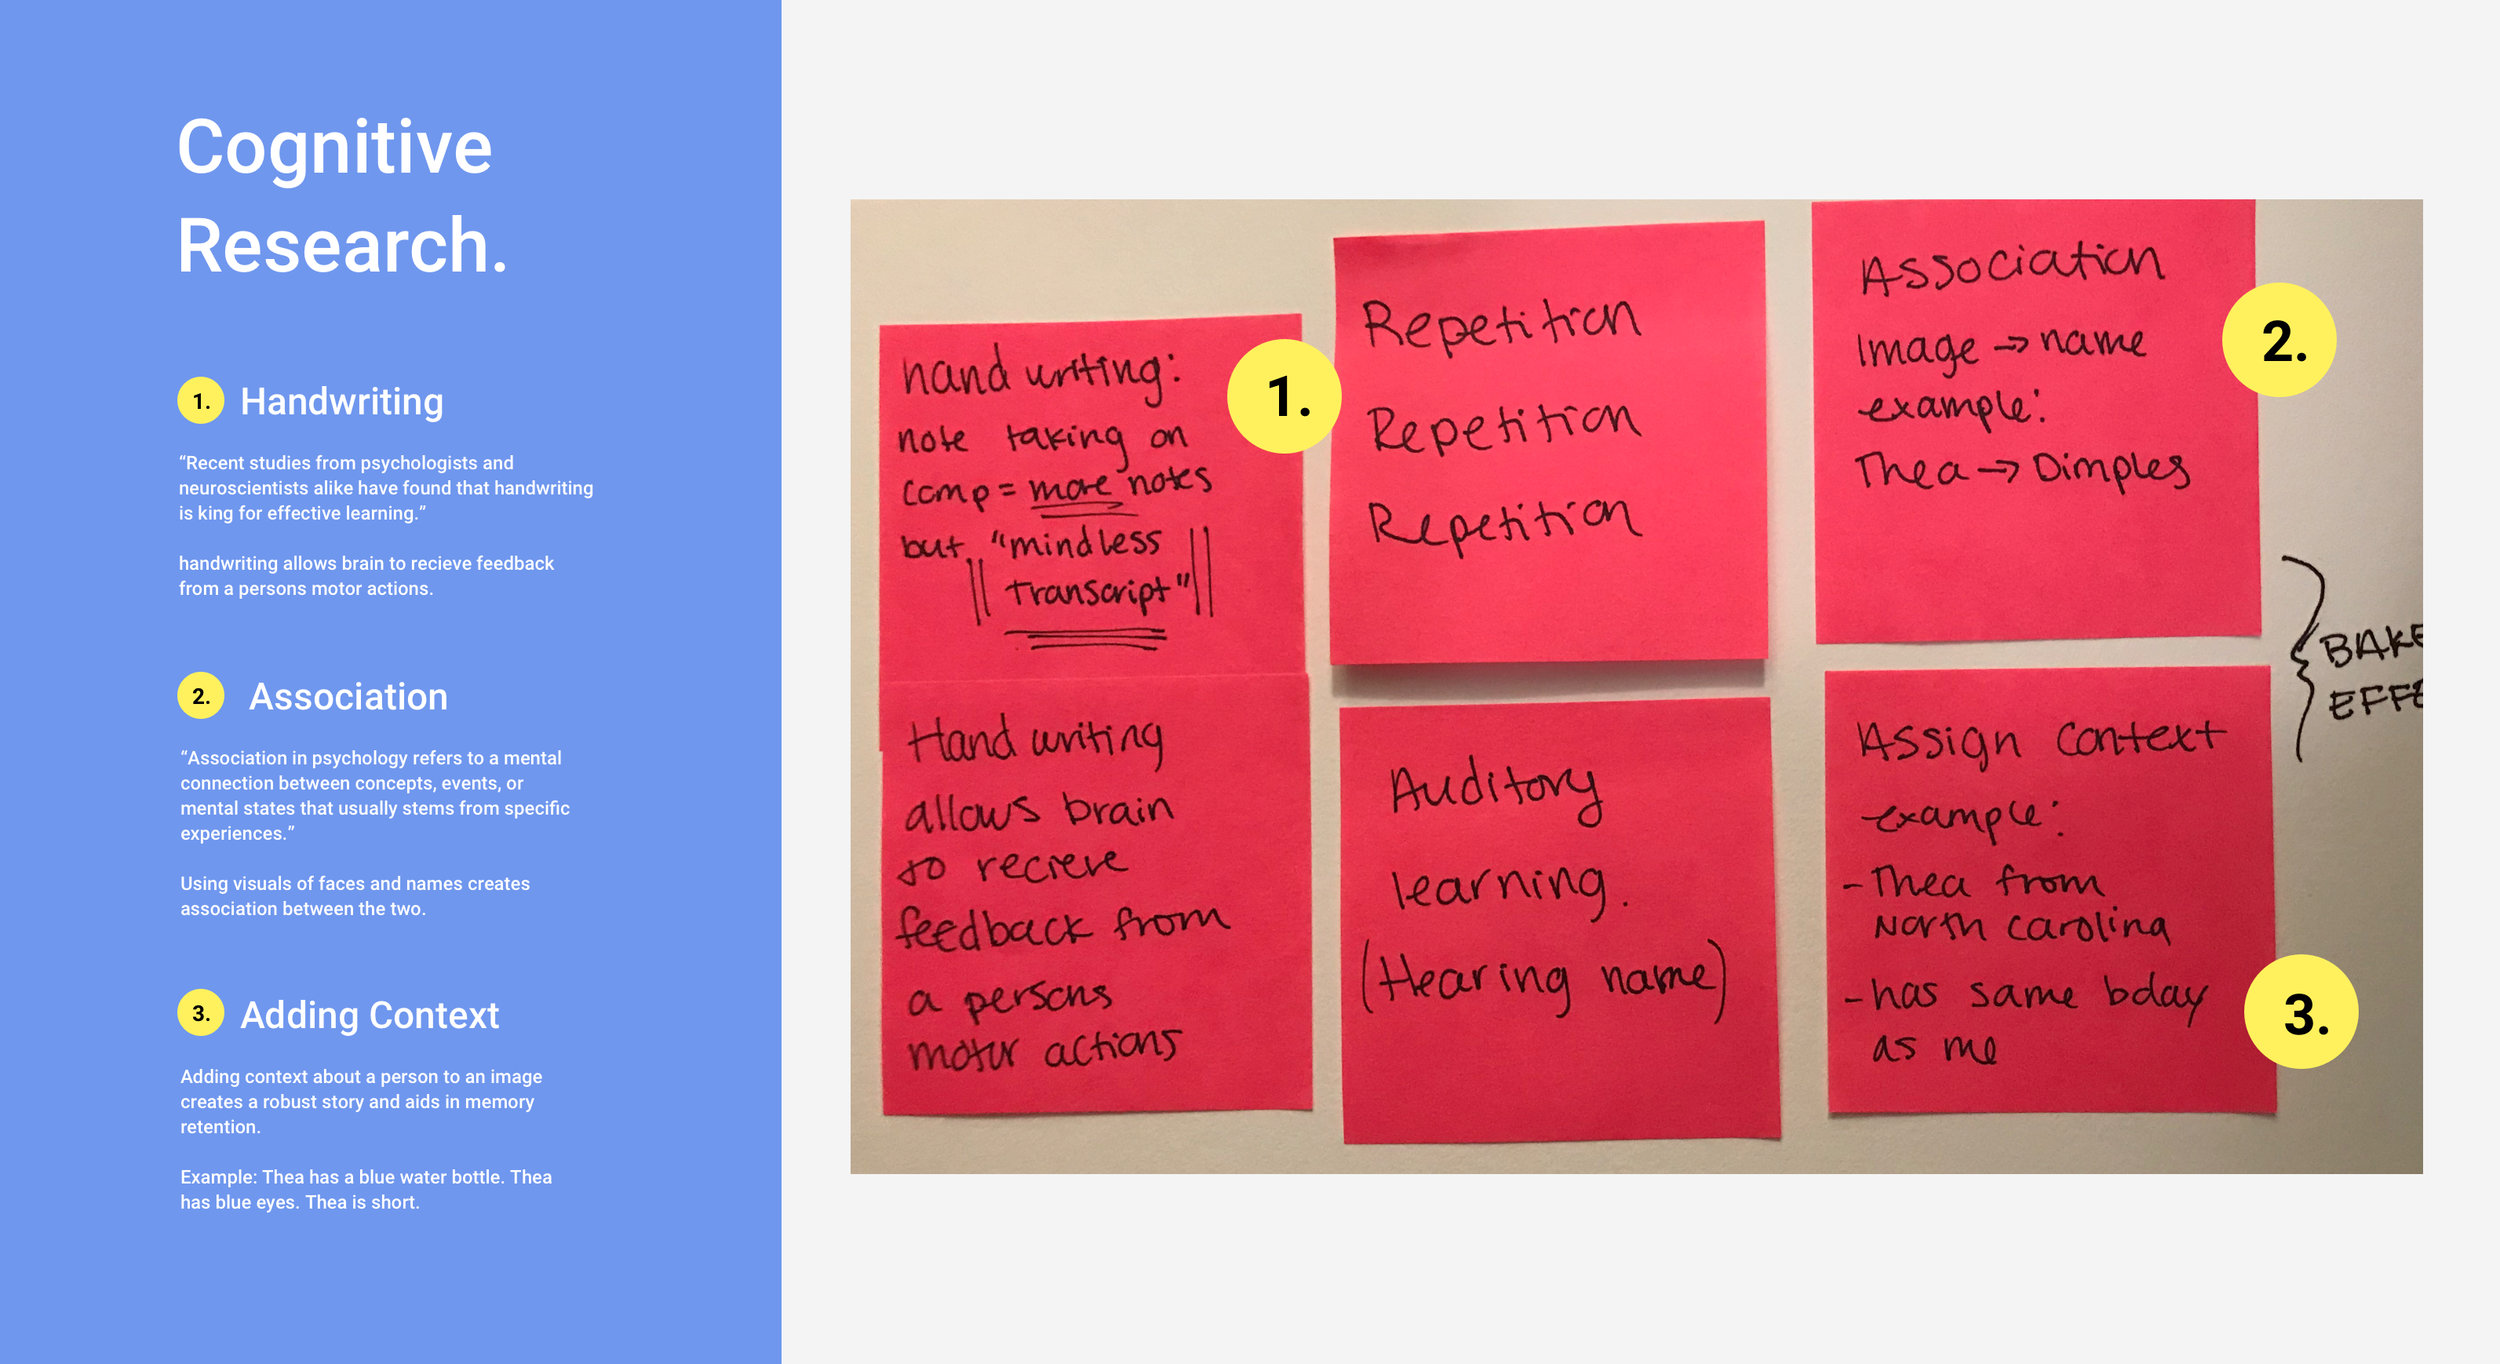 Cognitive
Research.
1. Handwriting
“Recent studies from psychologists and
neuroscientists alike have found that handwriting
is king for effective learning.”
handwriting allows brain to recieve feedback
from a persons motor actions.
2. Association
“Association in psychology refers to a mental
connection between concepts, events, or
mental states that usually stems from specific
experiences.”
Using visuals of faces and names creates
association between the two.
3. Adding Context
Adding context about a person to an image
creates a robust story and aids in memory
retention.
Example: Thea has a blue water bottle. Thea
has blue eyes. Thea is short.
hand writing:
note taking on
comp = more notes
but "mindless
transcript"
1.
Hand writing
allows brain
to recieve
feedback from
a persons
motor actions
Repetition
Repetition
Repetition
Auditory
learning.
(Hearing name)
Association
Image → name
example:
Thea → Dimples
2.
Assign context
example:
- Thea from
North carolina
- has same bday
as me
3.
BAKE
EFFE